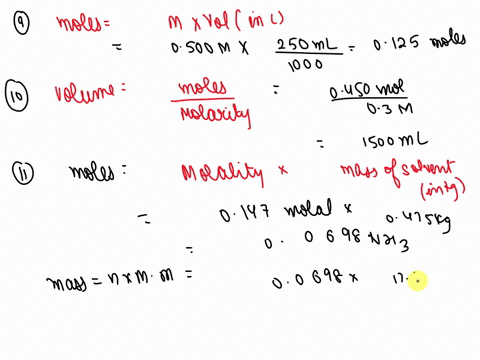 9 moles= M x Vol (in L)
= 0.500 M x 250 mL / 1000 = 0.125 moles
10 Volume = moles / Molarity = 0.450 mol / 0.3 M
= 1500 mL
11 moles = Molality x mass of solvent (in kg)
= 0.147 molal x 0.475 kg
= 0.0698 NH3
mass = n x m.m = 0.0698 x 17.